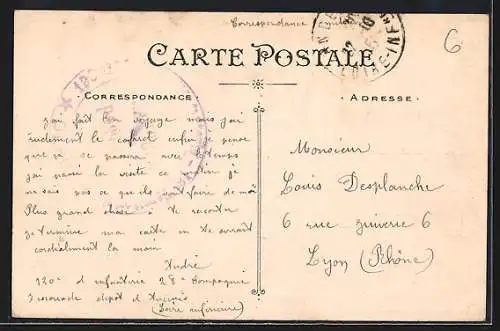 Correspondance
6
CARTE POSTALE
CORRESPONDANCE
ADRESSE
j'ai fait bon voyage mais j'ai
rudement le cafard enfin je pense
que sa se passera avec le temps
j'ai passé la visite ce matin je
ne sais pas ce que ils vont faire de moi
Plus grand chose a te raconter
je termine ma carte en te serrant
cordialement la main
André
120e d infanterie 28e Compagnie
depot d'Ancenis
(Loire inférieure)
Monsieur
Louis Desplanche
6 rue juiverie 6
Lyon (Rhône)